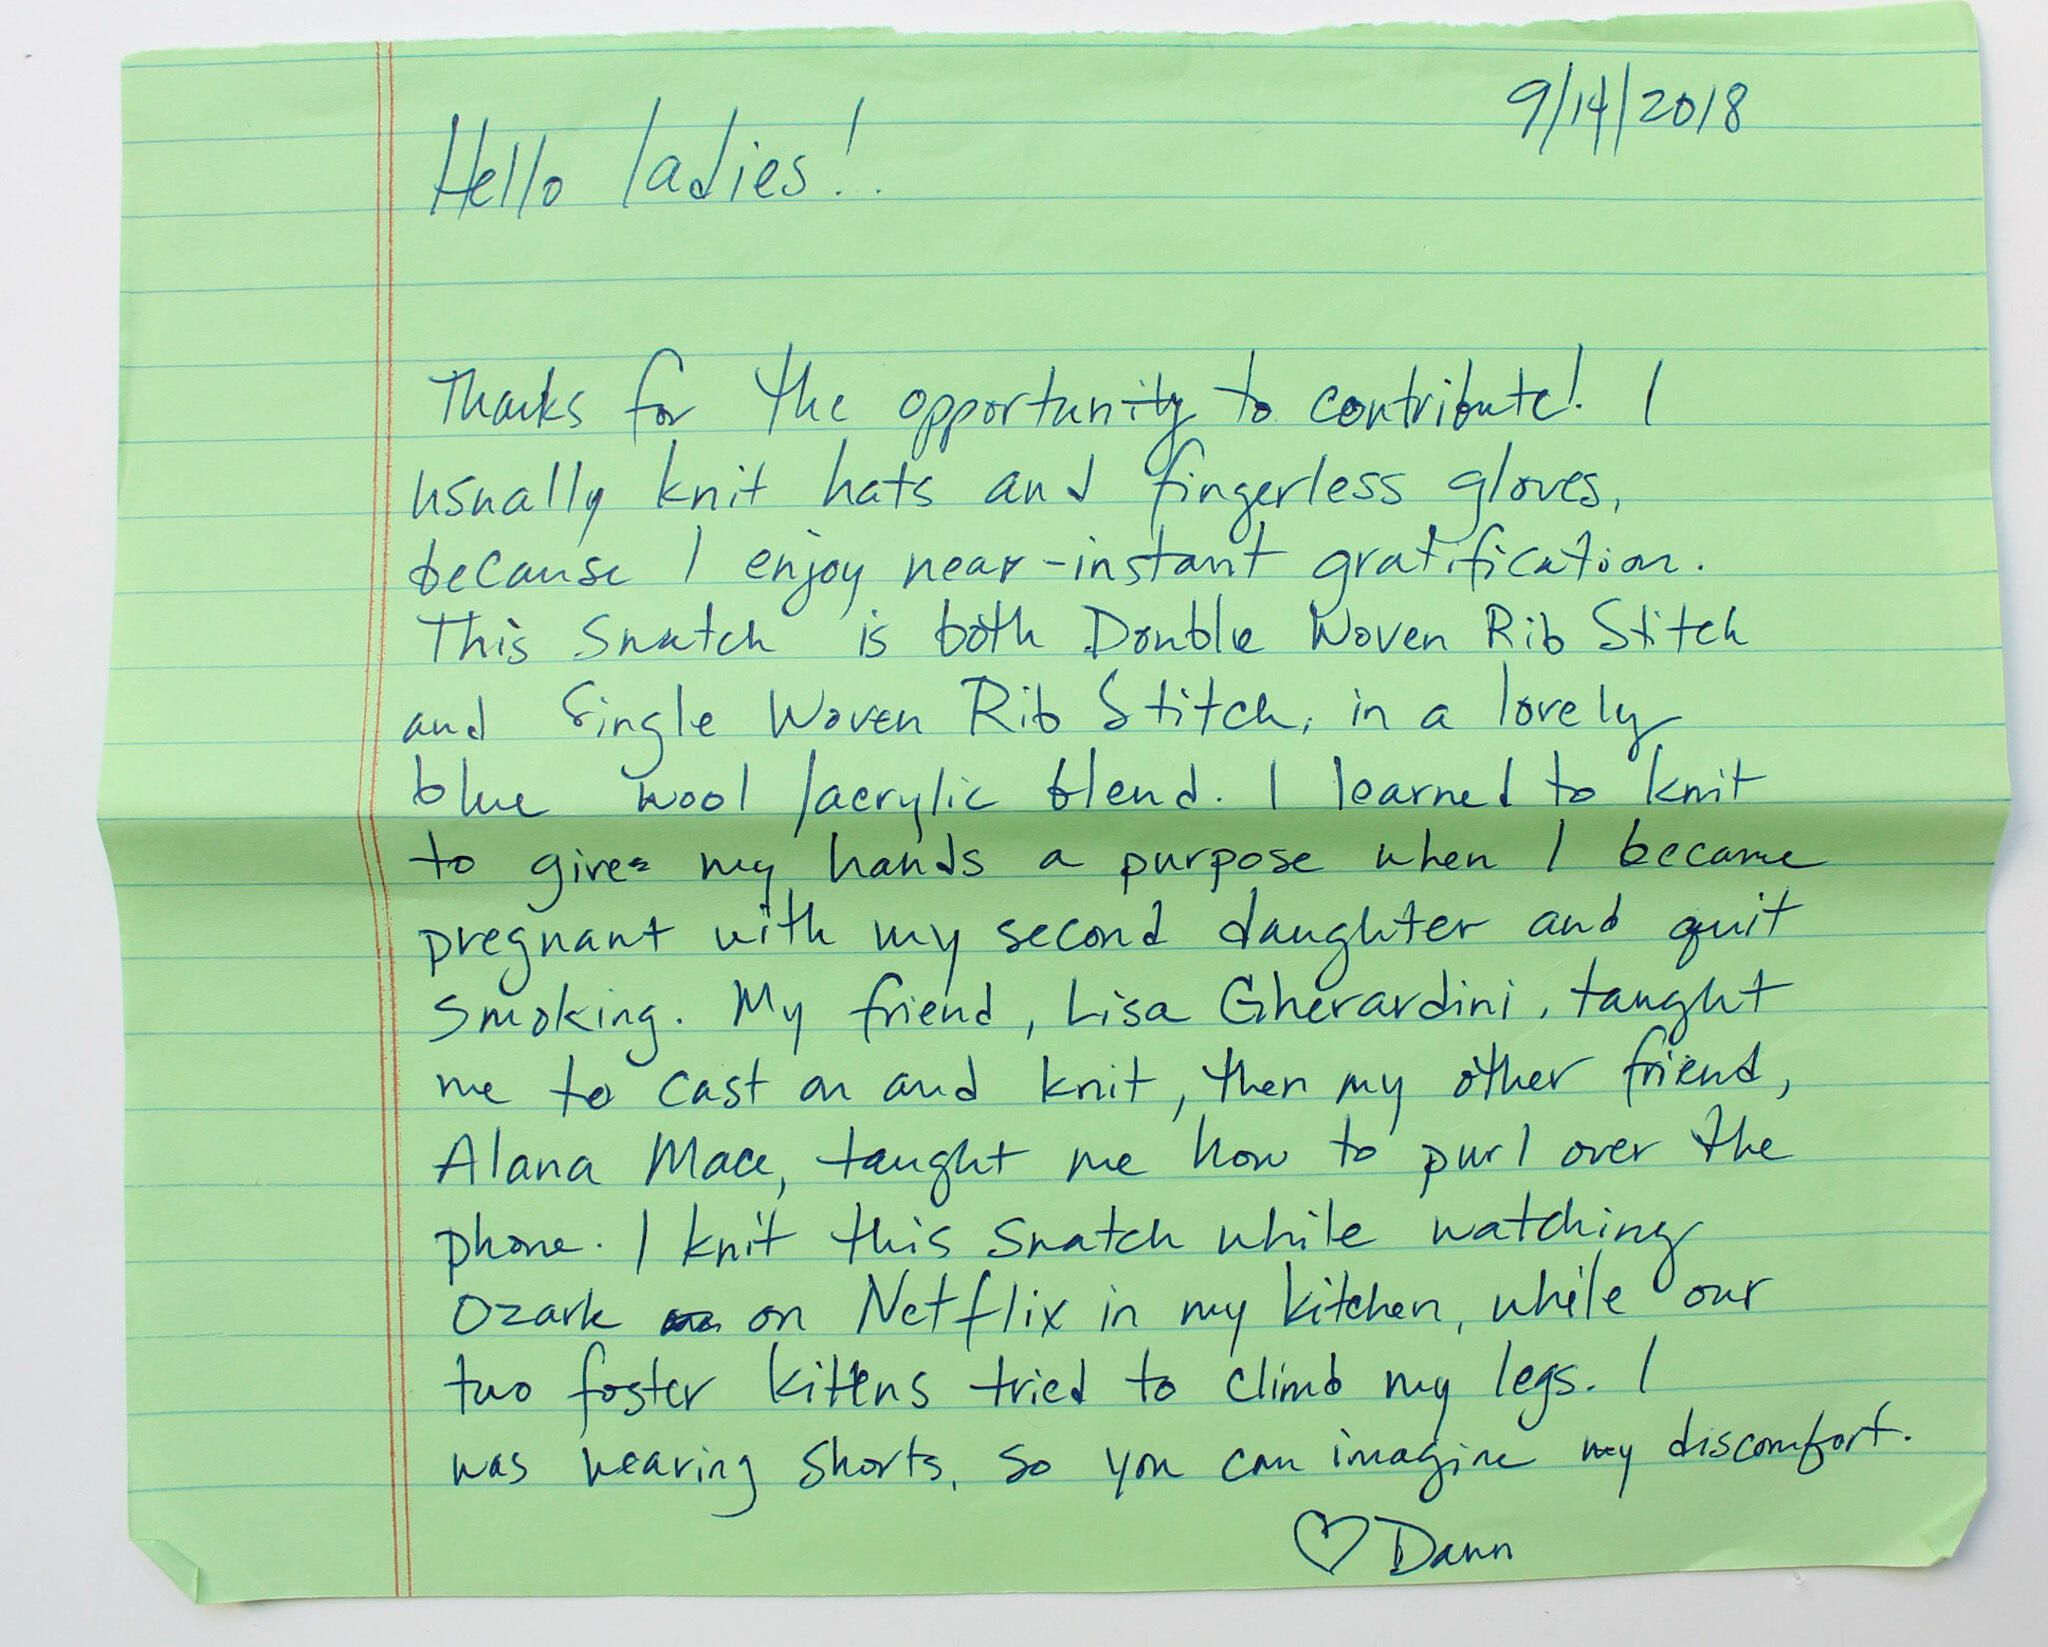 9/14/2018
Hello ladies!..
Thanks for the opportunity to contribute! I
usually knit hats and fingerless gloves,
because I enjoy near-instant gratification.
This Swatch is both Double Woven Rib Stitch
and Single Woven Rib Stitch, in a lovely
blue wool/acrylic blend. I learned to knit
to give my hands a purpose when I became
pregnant with my second daughter and quit
smoking. My friend, Lisa Gherardini, taught
me to cast on and knit, then my other friend,
Alana Mace, taught me how to purl over the
phone. I knit this swatch while watching
Ozark on Netflix in my kitchen, while our
two foster kittens tried to climb my legs. I
was wearing shorts, so you can imagine my discomfort.
♡ Dawn